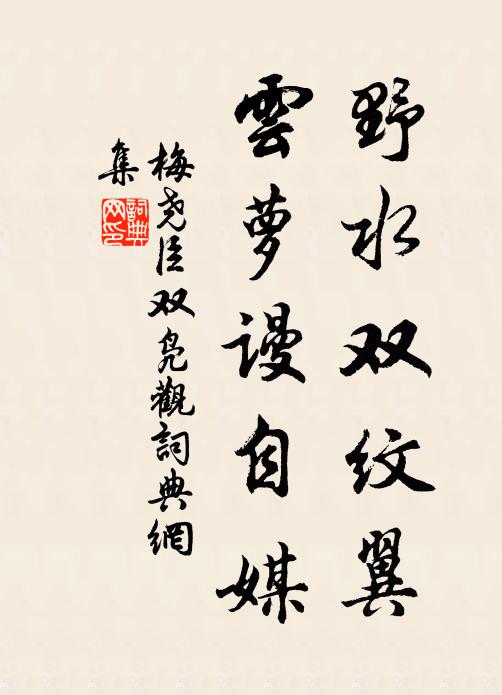 野水双纹翼
雲萝謾自媒
梅尧臣双凫觀詞典網
集
詞典
网印